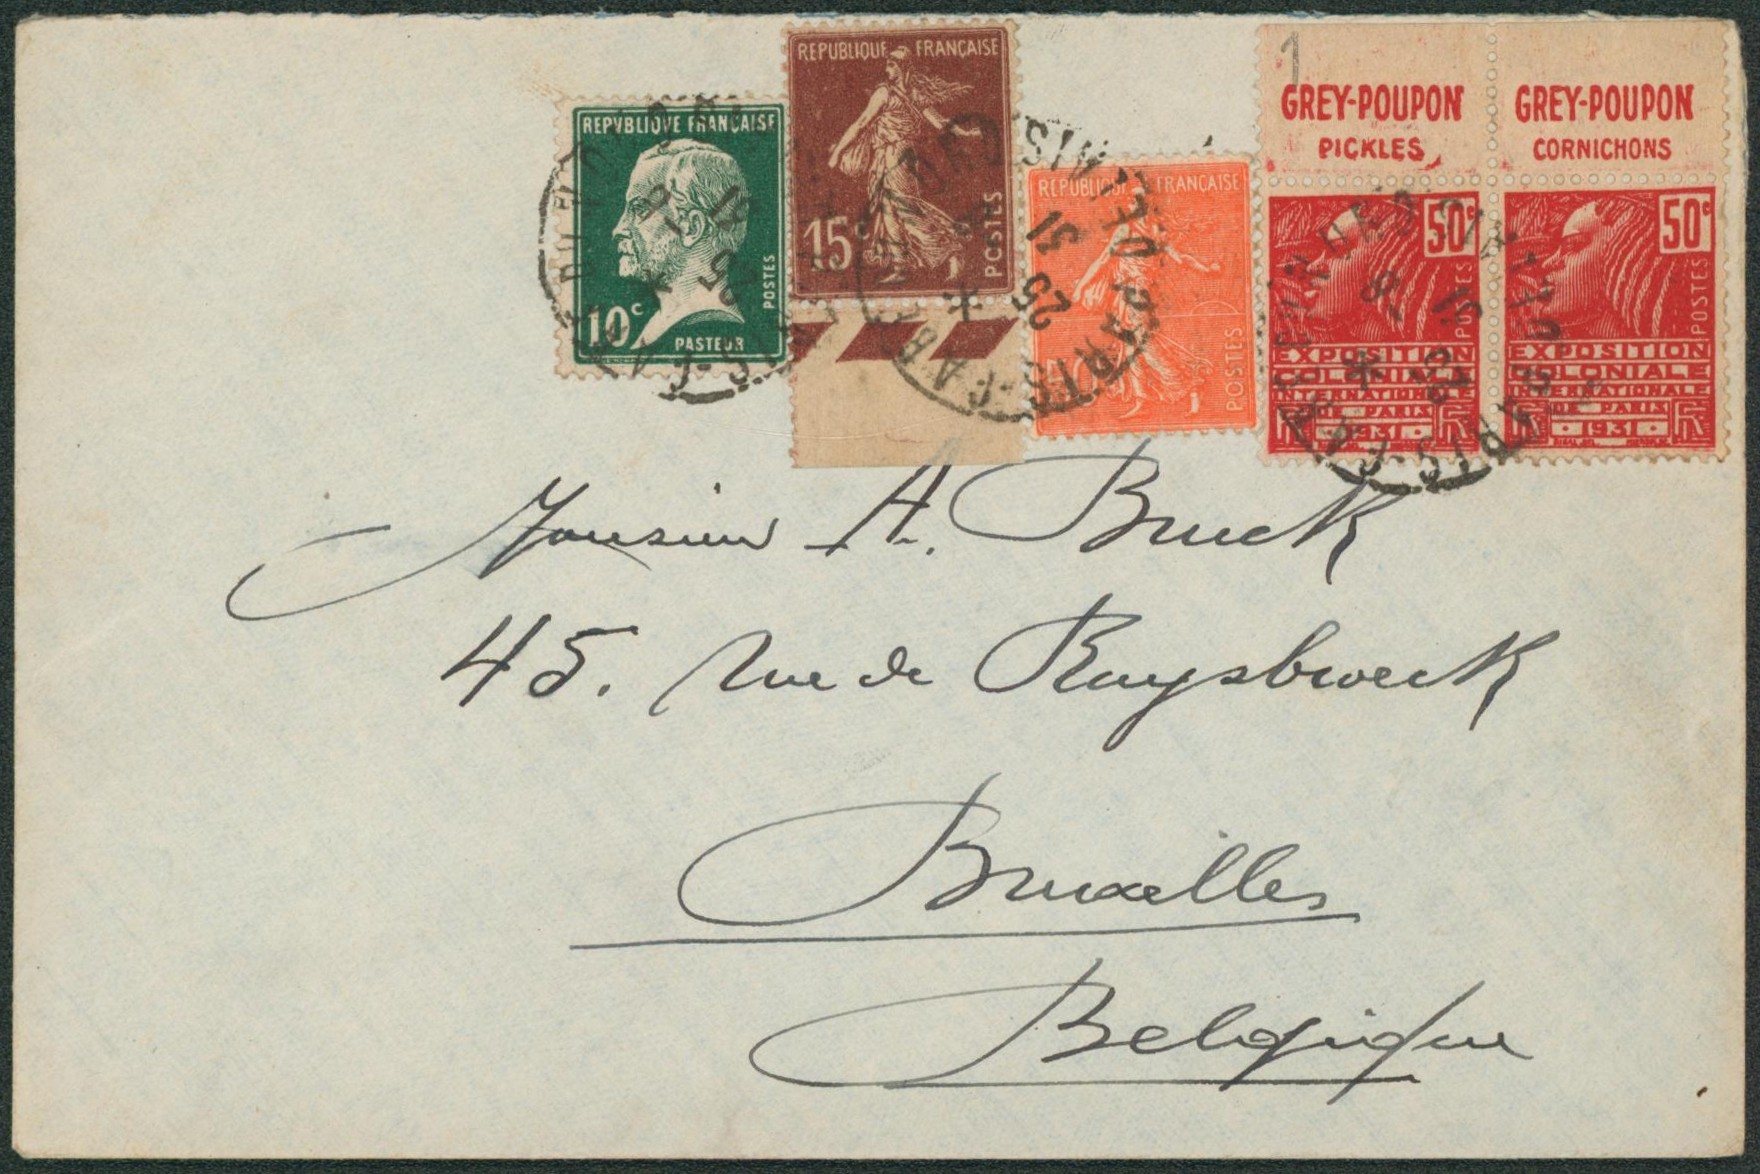 REPVBLIQVE FRANÇAISE
10c
PASTEUR
POSTES
REPUBLIQUE FRANÇAISE
15c
POSTES
REPUBLIQUE FRANÇAISE
POSTES
1
GREY-POUPON
PICKLES
50c
POSTES
EXPOSITION
COLONIALE
INTERNATIONALE
DE PARIS
1931
RF
GREY-POUPON
CORNICHONS
50c
POSTES
EXPOSITION
COLONIALE
INTERNATIONALE
DE PARIS
1931
RF
Monsieur A. Bruck
45. Rue de Ruysbroeck
Bruxelles
Belgique